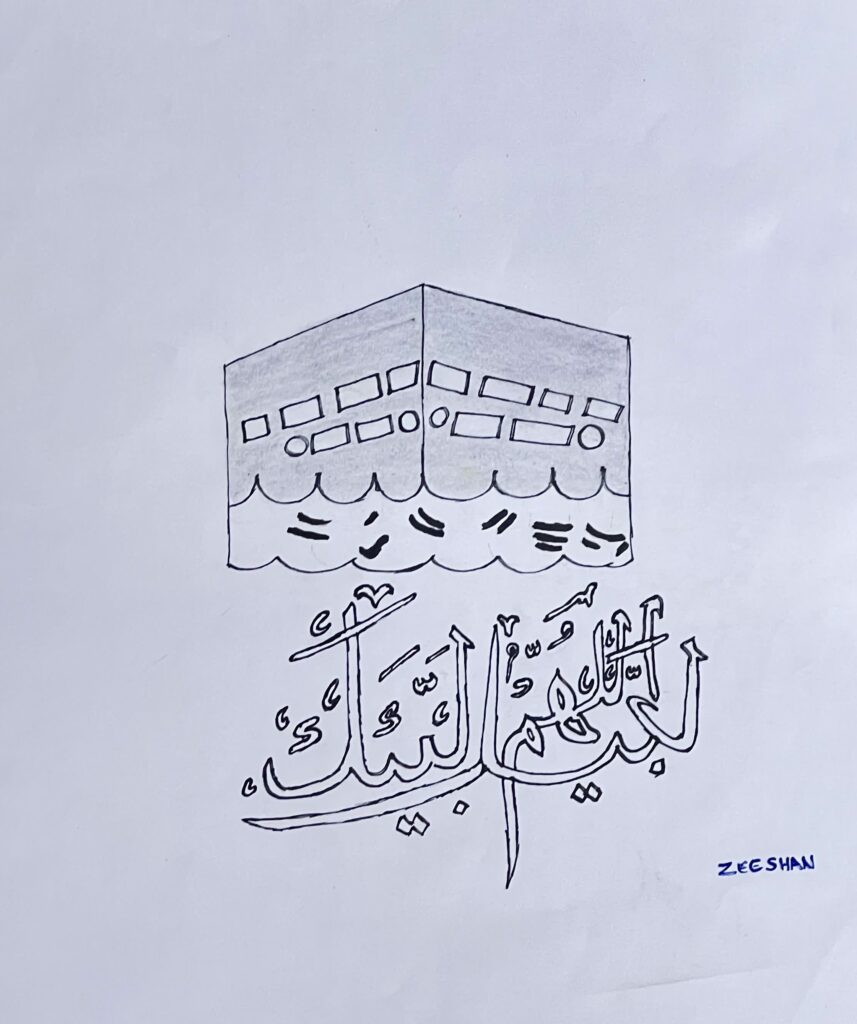 لبيك اللهم لبيك
ZEESHAN